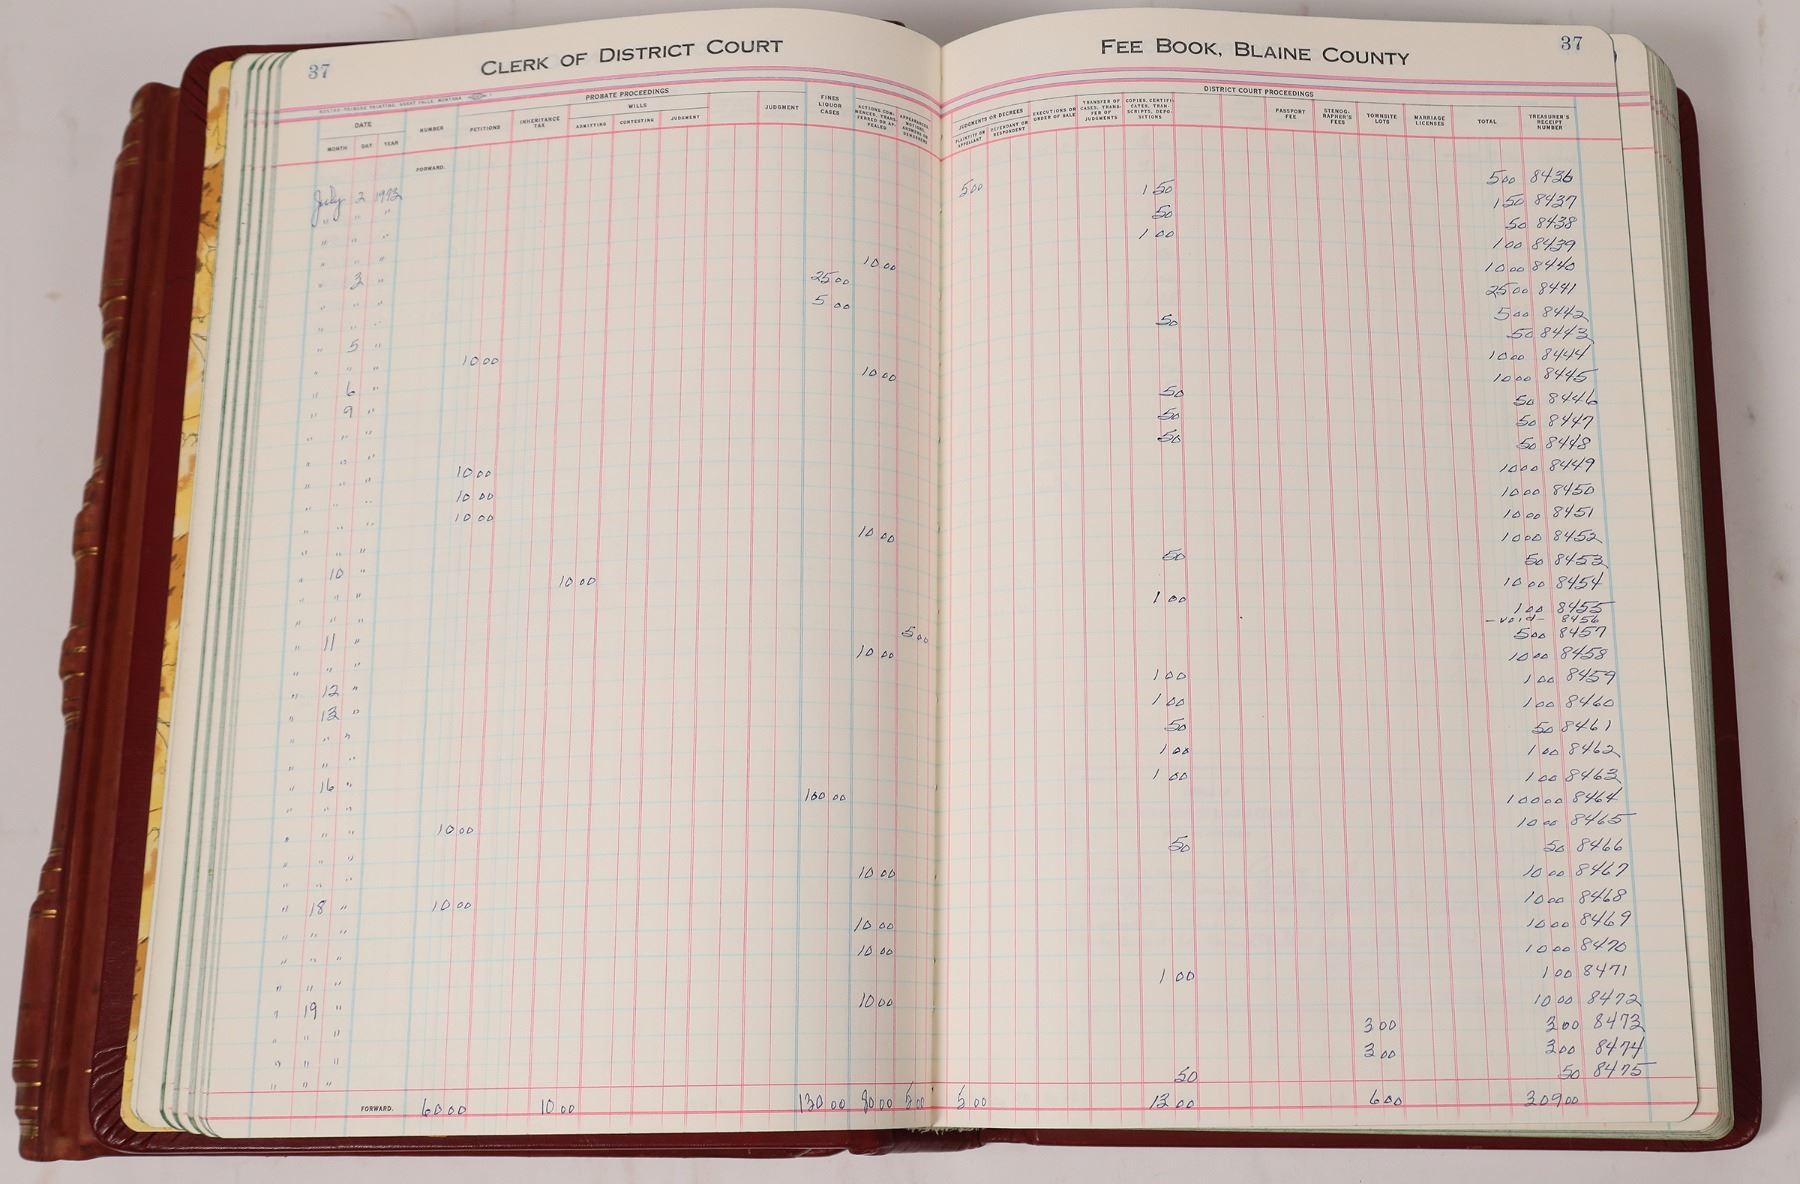 37
CLERK OF DISTRICT COURT
FEE BOOK, BLAINE COUNTY
37
PROBATE PROCEEDINGS
DISTRICT COURT PROCEEDINGS
DATE
MONTH DAY YEAR
NUMBER
PETITIONS
INHERITANCE TAX
WILLS
ADMITTING CONTESTING JUDGMENT
JUDGMENT
FINES LIQUOR CASES
ACTIONS COMMENCED, TRANSFERRED OR APPEALED
JUDGMENTS OR DECREES
PLAINTIFF OR APPELLANT
DEFENDANT OR RESPONDENT
EXECUTIONS OR ORDER OF SALE
TRANSFER OF CASES, TRANSFER OF JUDGMENTS
COPIES, CERTIFICATES, TRANSCRIPTS, DEPOSITIONS
PASSPORT FEE
STENOGRAPHER'S FEES
TOWNSITE LOTS
MARRIAGE LICENSES
TOTAL
TREASURER'S RECEIPT NUMBER
FORWARD.
July 2 500 500 8436
" " " 1 50 1 50 8437
" " " 50 50 8438
" " " 1 00 1 00 8439
" 3 " 10 00 10 00 8440
" " " 25 00 25 00 8441
" " " 5 00 5 00 8442
" 5 " 50 50 8443
" " " 10 00 10 00 8444
" 6 " 10 00 10 00 8445
" 9 " 50 50 8446
" " " 50 50 8447
" " " 50 50 8448
" " " 10 00 10 00 8449
" " " 10 00 10 00 8450
" " " 10 00 10 00 8451
" " " 10 00 10 00 8452
" 10 " 50 50 8453
" " " 10 00 10 00 8454
" " " 1 00 1 00 8455
- void - 8456
" 11 " 5 00 5 00 8457
" " " 10 00 10 00 8458
" 12 " 1 00 1 00 8459
" 13 " 1 00 1 00 8460
" " " 50 50 8461
" " " 1 00 1 00 8462
" 16 " 1 00 1 00 8463
" " " 100 00 100 00 8464
" " " 10 00 10 00 8465
" " " 50 50 8466
" " " 10 00 10 00 8467
" 18 " 10 00 10 00 8468
" " " 10 00 10 00 8469
" " " 10 00 10 00 8470
" " " 1 00 1 00 8471
" 19 " 10 00 10 00 8472
" " " 3 00 3 00 8473
" " " 3 00 3 00 8474
" " " 50 50 8475
FORWARD. 60 00 10 00 130 00 80 00 5 00 5 00 13 00 6 00 309 00